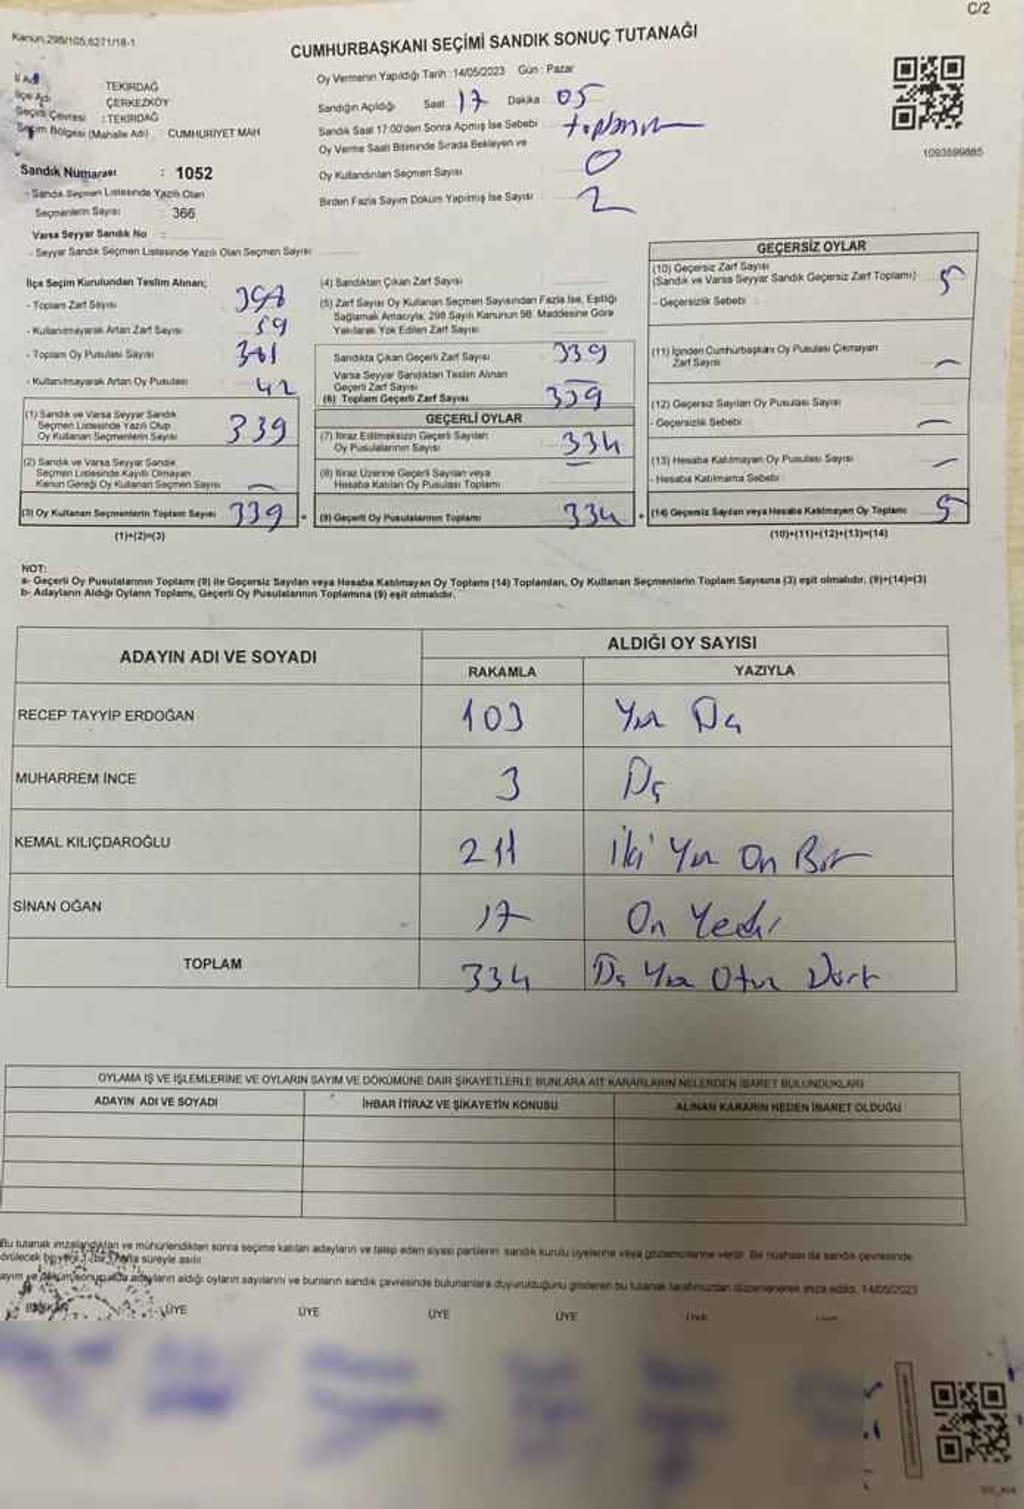 C/2
Kanun,298/105,6271/18-1
CUMHURBAŞKANI SEÇİMİ SANDIK SONUÇ TUTANAĞI
İl Adı TEKİRDAĞ
İlçe Adı ÇERKEZKÖY
Seçim Çevresi : TEKİRDAĞ
Seçim Bölgesi (Mahalle Adı) CUMHURİYET MAH
Sandık Numarası : 1052
- Sandık Seçmen Listesinde Yazılı Olan
Seçmenlerin Sayısı 366
Varsa Seyyar Sandık No :
- Seyyar Sandık Seçmen Listesinde Yazılı Olan Seçmen Sayısı
Oy Vermenin Yapıldığı Tarih :14/05/2023 Gün : Pazar
Sandığın Açıldığı Saat 17 Dakika 05
Sandık Saat 17:00'den Sonra Açılmış İse Sebebi
Oy Verme Saati Bitiminde Sırada Bekleyen ve
Oy Kullandırılan Seçmen Sayısı 0
Birden Fazla Sayım Döküm Yapılmış İse Sayısı 2
1093899885
İlçe Seçim Kurulundan Teslim Alınan;
- Toplam Zarf Sayısı 398
- Kullanılmayarak Artan Zarf Sayısı 59
- Toplam Oy Pusulası Sayısı 381
- Kullanılmayarak Artan Oy Pusulası 42
(1) Sandık ve Varsa Seyyar Sandık
Seçmen Listesinde Yazılı Olup
Oy Kullanan Seçmenlerin Sayısı 339
(2) Sandık ve Varsa Seyyar Sandık
Seçmen Listesinde Kayıtlı Olmayan
Kanun Gereği Oy Kullanan Seçmen Sayısı —
(3) Oy Kullanan Seçmenlerin Toplam Sayısı 339 =
(1)+(2)=(3)
(4) Sandıktan Çıkan Zarf Sayısı
(5) Zarf Sayısı Oy Kullanan Seçmen Sayısından Fazla İse, Eşitliği
Sağlamak Amacıyla, 298 Sayılı Kanunun 98. Maddesine Göre
Yakılarak Yok Edilen Zarf Sayısı
Sandıkta Çıkan Geçerli Zarf Sayısı 339
Varsa Seyyar Sandıktan Teslim Alınan
Geçerli Zarf Sayısı —
(6) Toplam Geçerli Zarf Sayısı 339
GEÇERLİ OYLAR
(7) İtiraz Edilmeksizin Geçerli Sayılan
Oy Pusulalarının Sayısı 334
(8) İtiraz Üzerine Geçerli Sayılan veya
Hesaba Katılan Oy Pusulası Toplamı —
(9) Geçerli Oy Pusulalarının Toplamı 334 +
GEÇERSİZ OYLAR
(10) Geçersiz Zarf Sayısı
(Sandık ve Varsa Seyyar Sandık Geçersiz Zarf Toplamı) 5
- Geçersizlik Sebebi :
(11) İçinden Cumhurbaşkanı Oy Pusulası Çıkmayan
Zarf Sayısı —
(12) Geçersiz Sayılan Oy Pusulası Sayısı
- Geçersizlik Sebebi —
(13) Hesaba Katılmayan Oy Pusulası Sayısı —
- Hesaba Katılmama Sebebi
(14) Geçersiz Sayılan veya Hesaba Katılmayan Oy Toplamı 5
(10)+(11)+(12)+(13)=(14)
NOT:
a- Geçerli Oy Pusulalarının Toplamı (9) ile Geçersiz Sayılan veya Hesaba Katılmayan Oy Toplamı (14) Toplamları, Oy Kullanan Seçmenlerin Toplam Sayısına (3) eşit olmalıdır. (9)+(14)=(3)
b- Adayların Aldığı Oyların Toplamı, Geçerli Oy Pusulalarının Toplamına (9) eşit olmalıdır.
ADAYIN ADI VE SOYADI ALDIĞI OY SAYISI
RAKAMLA YAZIYLA
RECEP TAYYİP ERDOĞAN 103 Yüz Üç
MUHARREM İNCE 3 Üç
KEMAL KILIÇDAROĞLU 211 İki Yüz On Bir
SİNAN OĞAN 17 On Yedi
TOPLAM 334 Üç Yüz Otuz Dört
OYLAMA İŞ VE İŞLEMLERİNE VE OYLARIN SAYIM VE DÖKÜMÜNE DAİR ŞİKAYETLERLE BUNLARA AİT KARARLARIN NELERDEN İBARET BULUNDUKLARI
ADAYIN ADI VE SOYADI İHBAR İTİRAZ VE ŞİKAYETİN KONUSU ALINAN KARARIN NEDEN İBARET OLDUĞU
Bu tutanak imzalandıktan ve mühürlendikten sonra seçime katılan adayların ve talep eden siyasi partilerin sandık kurulu üyelerine veya gözlemcilerine verilir. Bir nüshası da sandık çevresinde
süreyle asılır.
adayların aldığı oyların sayılarını ve bunların sandık çevresinde bulunanlara duyurulduğunu gösteren bu tutanak tarafımızdan düzenlenerek imza edildi. 14/05/2023
BAŞKAN ÜYE ÜYE ÜYE ÜYE ÜYE